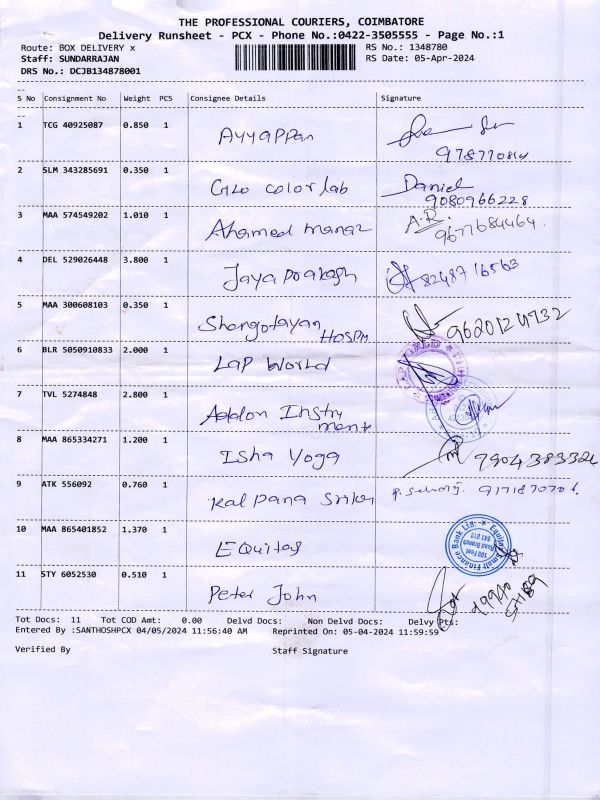 THE PROFESSIONAL COURIERS, COIMBATORE
Delivery Runsheet - PCX - Phone No.:0422-3505555 - Page No.:1
Route: BOX DELIVERY x RS No.: 1348780
Staff: SUNDARRAJAN RS Date: 05-Apr-2024
DRS No.: DCJB134878001
S No Consignment No Weight PCS Consignee Details Signature
1 TCG 40925087 0.850 1 Ayyappan
2 SLM 343285691 0.350 1 color lab Daniel
9080966228
3 MAA 574549202 1.010 1 Ahamed A.R.
9677684464
4 DEL 529026448 3.800 1 Jaya prakash 82487 16563
5 MAA 300608103 0.350 1
6 BLR 5050910833 2.000 1 Lap World
7 TVL 5274848 2.800 1
8 MAA 865334271 1.200 1 Isha Yoga
9 ATK 556092 0.760 1 Kalpana
10 MAA 865401852 1.370 1 Equitas
11 STY 6052530 0.510 1 Peter John
Tot Docs: 11 Tot COD Amt: 0.00 Delvd Docs: Non Delvd Docs: Delvy Pts:
Entered By :SANTHOSHPCX 04/05/2024 11:56:40 AM Reprinted On: 05-04-2024 11:59:59
Verified By Staff Signature